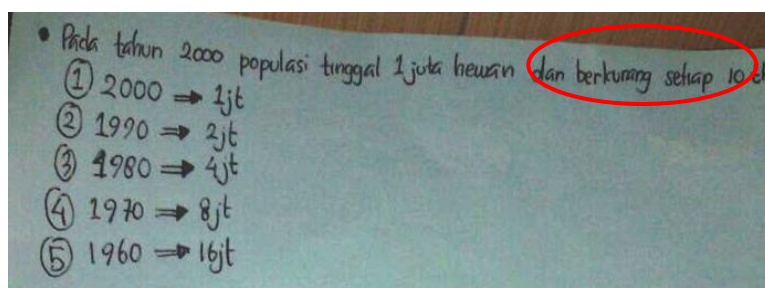 • Pada tahun 2000 populasi tinggal 1 juta hewan dan berkurang setiap 10
① 2000 ⇒ 1jt
② 1990 ⇒ 2jt
③ 1980 ⇒ 4jt
④ 1970 ⇒ 8jt
⑤ 1960 ⇒ 16jt